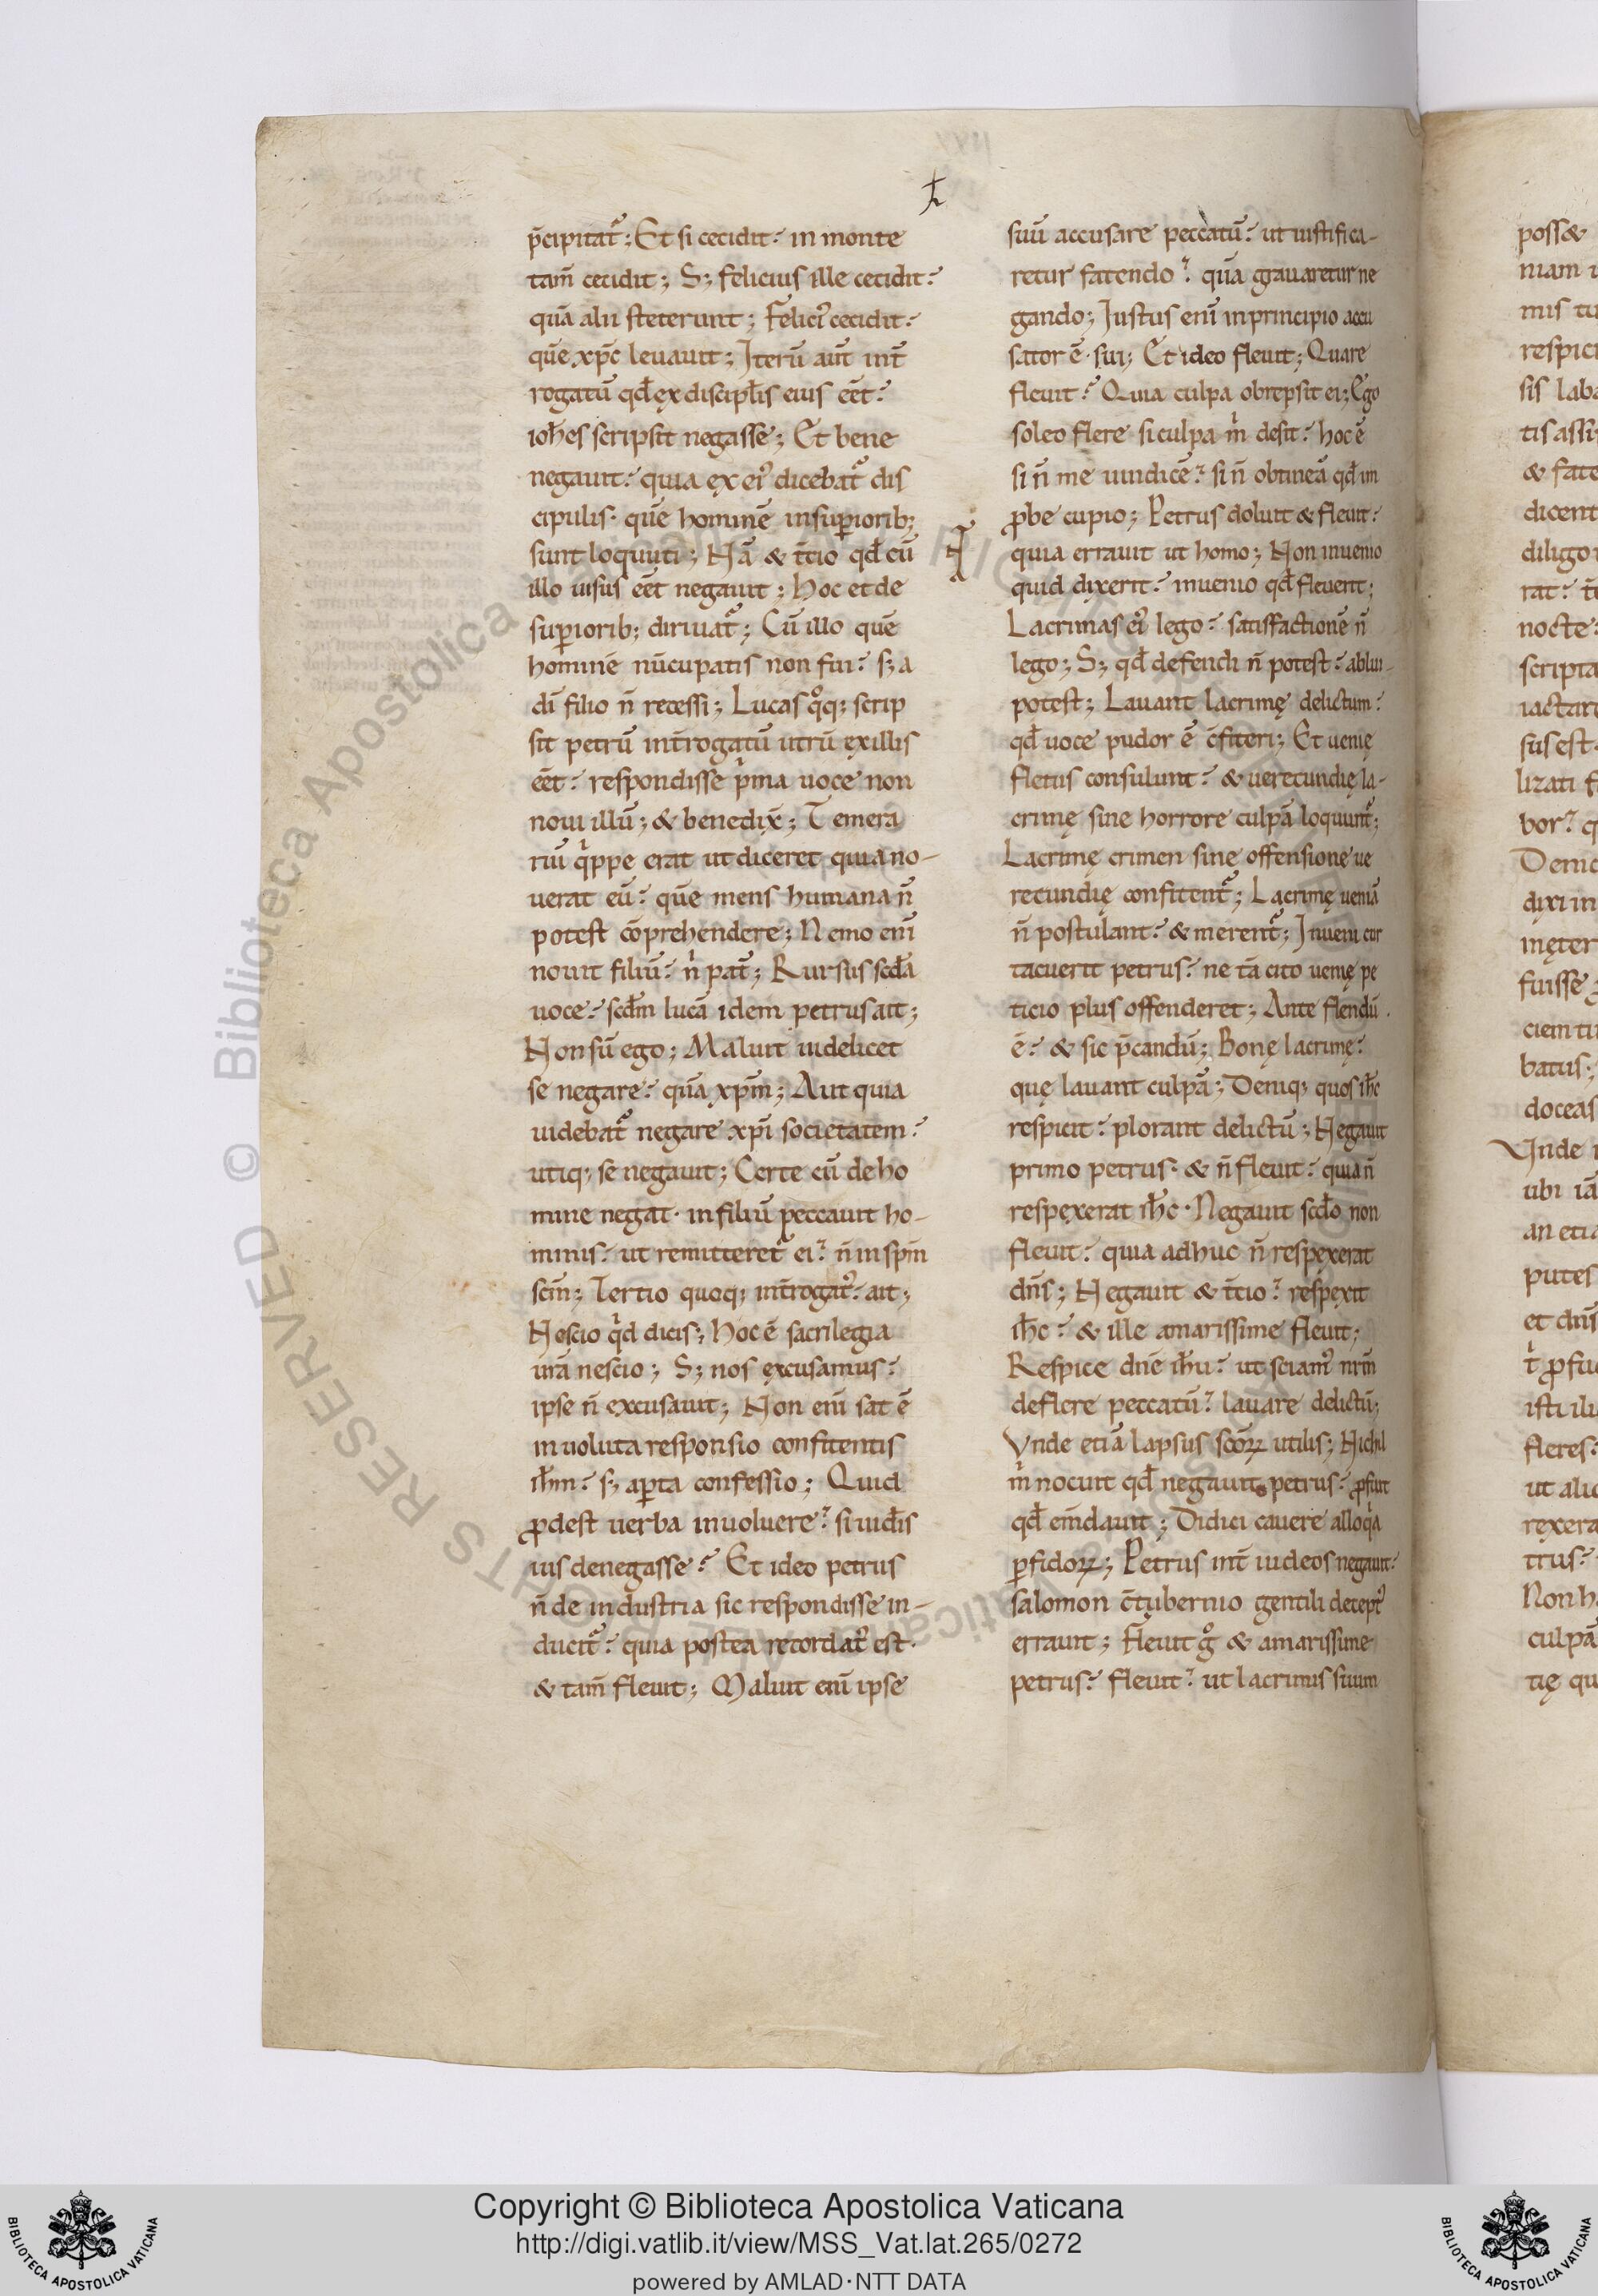 p̄cipitat᷑; Et si cecidit? in monte
tam̄ cecidit; S; felicius ille cecidit?
quā alii steterunt; Felici᷒ cecidit?
quē xp̄c leuauit; Iterū aūt int̄
rogatū qđ ex discipłis eius eēt?
ioħes scripsit negasse; Et bene
negauit? quia ex ei᷒ dicebat᷑ dis
cipulis· quē hominē insup̱iorib;
sunt loquuti; Nā & t̄cio qđ cū
illo uisus eēt negauit; Hoc et de
sup̱iorib; diriuat᷑; Cū illo quē
hominē nūcupatis non fui? s; a
dī filio n̄ recessi; Lucas qͦq; scrip
sit petrū int̄rogatū utrū ex illis
eēt? respondisse pͥma uoce non
noui illū; & bene dix̄; Temera
riū qͥppe erat ut diceret quia no-
uerat eū? quē mens humana n̄
potest cōprehendere; Nemo enī
nouit filiū? nͥ pat̄; Rursus scđa
uoce? scđm lucā idem petrus ait;
Non sū ego; Maluit uidelicet
se negare? quā xp̄m; Aut quia
uidebat᷑ negare xp̄i societatem?
utiq; se negauit; Certe cū de ho
mine negat· in filiū peccauit ho-
minis? ut remitteret᷑ ei? n̄ in sp̄m
sc̄m; Tertio quoq; int̄rogat᷒? ait;
Nescio qͥd dicis; Hoc ē sacrilegia
urā nescio; S; nos excusamus?
ipse n̄ excusauit; Non enī sat ē
inuoluta responsio confitentis
iħm? s; ap̱ta confessio; Quid
ꝓdest uerba inuoluere? si uiđis
uis denegasse? Et ideo petrus
n̄ de industria sic respondisse in-
ducit᷑? quia postea recordat᷒ est·
& tam̄ fleuit; Maluit enī ipse
suū accusare peccatū? ut iustifica-
retur fatendo? quā grauaretur ne
gando; Iustus enī in principio accu
sator ē· sui; Et ideo fleuit; Quare
fleuit? Quia culpa obrepsit ei; Ego
soleo flere si culpa mͥ desit? hoc ē
si n̄ me uindicē? si n̄ obtineā qđ im
ꝓbe cupio; Petrus doluit & fleuit?
quia errauit ut homo; Non inuenio
quid dixerit? inuenio qđ fleuerit;
Lacrimas ei᷒ lego? satisfactionē n̄
lego; S; qđ defendi n̄ potest? ablui-
potest; Lauant lacrimę delictum?
qđ uoce pudor ē c̄fiteri; Et uenię
fletus consulunt? & uerecundię la-
crimę sine horrore culpā loquunt᷑;
Lacrimę crimen sine offensione ue
recundię confitent᷑; Lacrimę ueniā
n̄ postulant? & merent᷑; Inueni cur
tacuerit petrus? ne tā cito uenię pe
ticio plus offenderet; Ante flendū
ē? & sic p̄candū; Bonę lacrimę?
quę lauant culpā; Deniq; quos iħc
respicit? plorant delictū; Negauit
primo petrus· & n̄ fleuit? quia n̄
respexerat iħc· Negauit scđo non
fleuit? quia adhuc n̄ respexerat
dn̄s; Negauit & t̄cio? respexit
iħc? & ille amarissime fleuit;
Respice dn̄e iħu? ut sciam᷒ nr̄m
deflere peccatū? lauare delictū;
Vnde etiā lapsus scōꝝ utilis; Nichil
mͥ nocuit qđ negauit petrus? ꝓfuit
qđ em̄dauit; Didici cauere alloqͥa
p̱fidoꝝ; Petrus int̄ iudeos negauit?
salomon c̄tubernio gentili decept᷒
errauit; Fleuit gͦ & amarissime
petrus? fleuit? ut lacrimis suum
poss&
niam
mis tu
respici
sis laba
tis assi
& fate
dicent
diligo
rat?
nocte
scripta
iactar
sus est
lizati f
bor? q
Denic
dixi in
męter
fuisse
ciem tu
batus;
doceas
Vnde
ubi iā
an etia
putes
et dn̄s
tͥ ꝓfu
isti ilu
fleres?
ut alic
rexera
trus?
Non h
culpā
tię qu
Copyright © Biblioteca Apostolica Vaticana
http://digi.vatlib.it/view/MSS_Vat.lat.265/0272
powered by AMLAD·NTT DATA
BIBLIOTECA APOSTOLICA VATICANA
BIBLIOTECA APOSTOLICA VATICANA